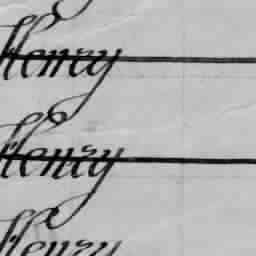 Henry
Henry
Henry